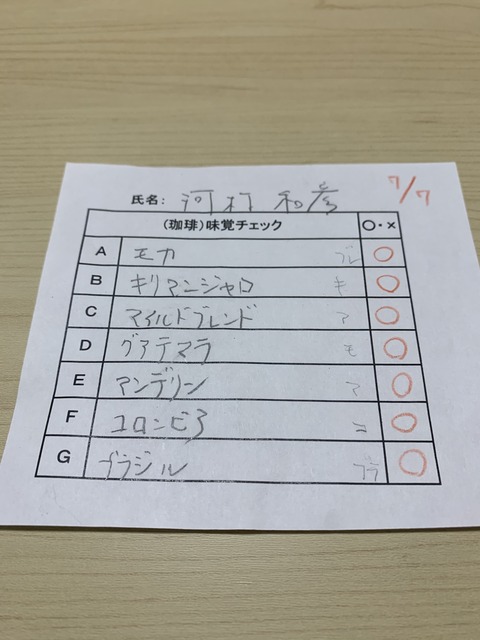 氏名: 河村 和彦
7/7
(珈琲)味覚チェック ○・×
A モカ ブレ ○
B キリマンジャロ キ ○
C マイルドブレンド マ ○
D グアテマラ モ ○
E マンデリン マ ○
F コロンビア コ ○
G ブラジル ブラ ○